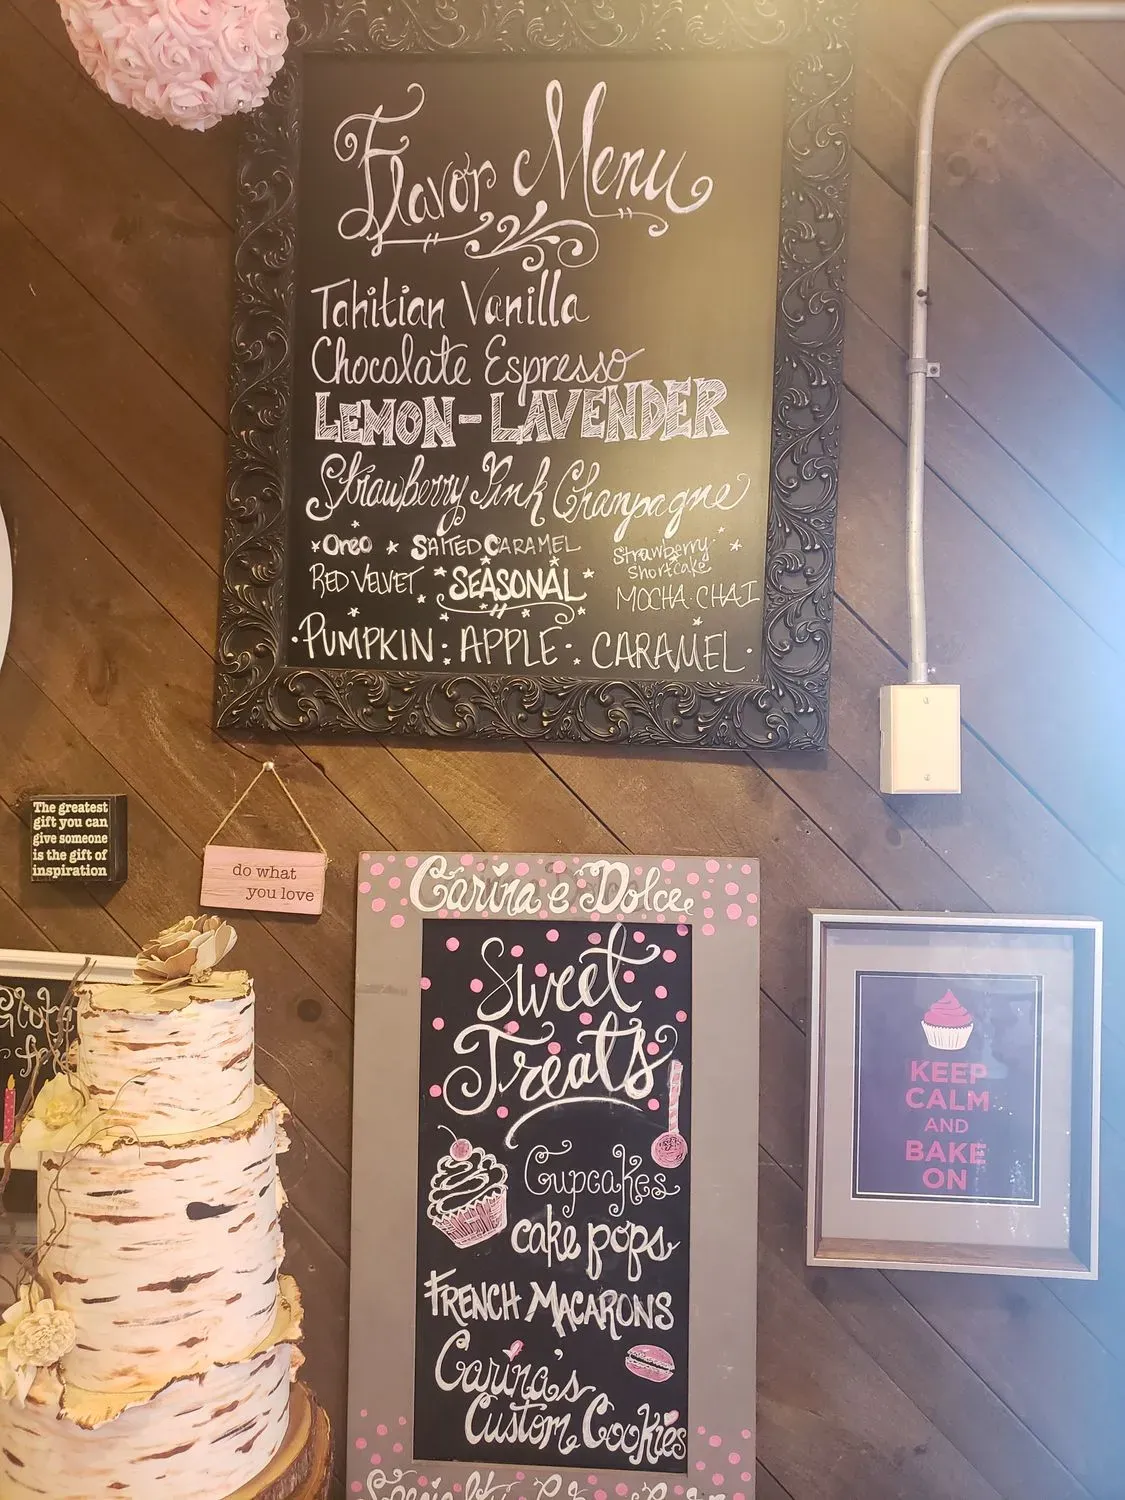 Flavor Menu
Tahitian Vanilla
Chocolate Espresso
LEMON-LAVENDER
Strawberry Pink Champagne
Oreo SALTED CARAMEL Strawberry Shortcake
RED VELVET SEASONAL MOCHA CHAI
PUMPKIN APPLE CARAMEL
The greatest
gift you can
give someone
is the gift of
inspiration
do what
you love
Carina e Dolce
Sweet
Treats
Cupcakes
cake pops
FRENCH MACARONS
Carina's
Custom Cookies
KEEP
CALM
AND
BAKE
ON